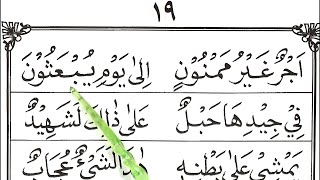 ١٩
اَجْرٌ غَيْرُ مَمْنُوْنٍ اِلٰى يَوْمِ يُبْعَثُوْنَ
فِيْ جِيْدِهَا حَبْلٌ عَلٰى ذٰلِكَ لَشَهِيْدٌ
يَمْشِيْ عَلٰى بَطْنِهٖ لَشَيْءٌ عُجَابٌ